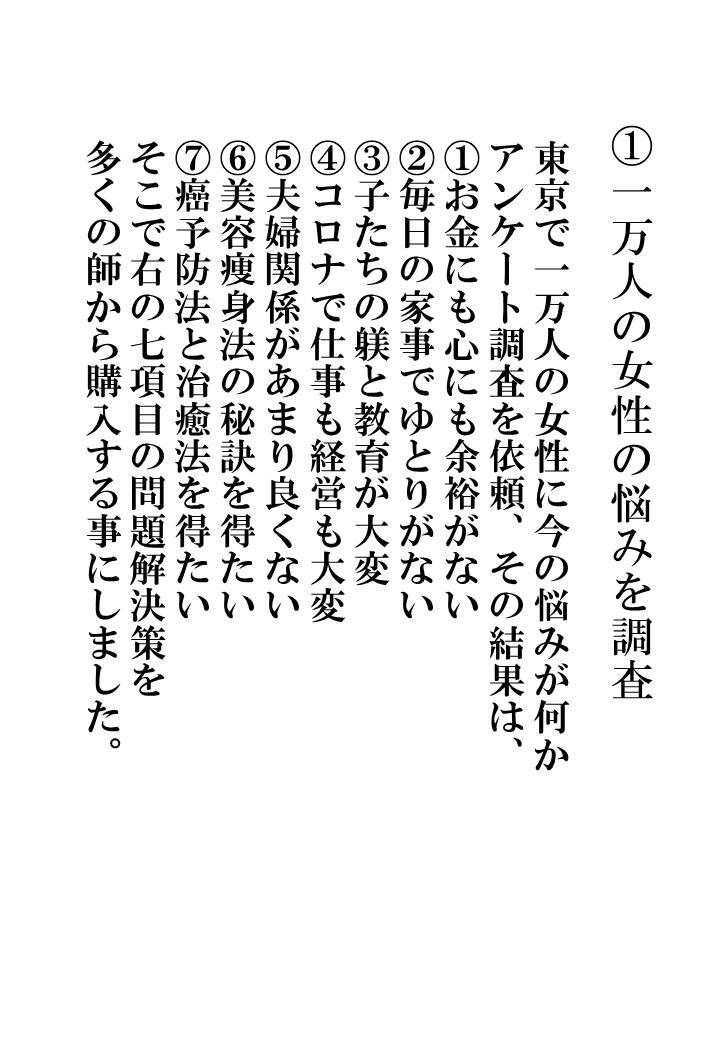 ①一万人の女性の悩みを調査
東京で一万人の女性に今の悩みが何か
アンケート調査を依頼、その結果は、
①お金にも心にも余裕がない
②毎日の家事でゆとりがない
③子たちの躾と教育が大変
④コロナで仕事も経営も大変
⑤夫婦関係があまり良くない
⑥美容痩身法の秘訣を得たい
⑦癌予防法と治癒法を得たい
そこで右の七項目の問題解決策を
多くの師から購入する事にしました。